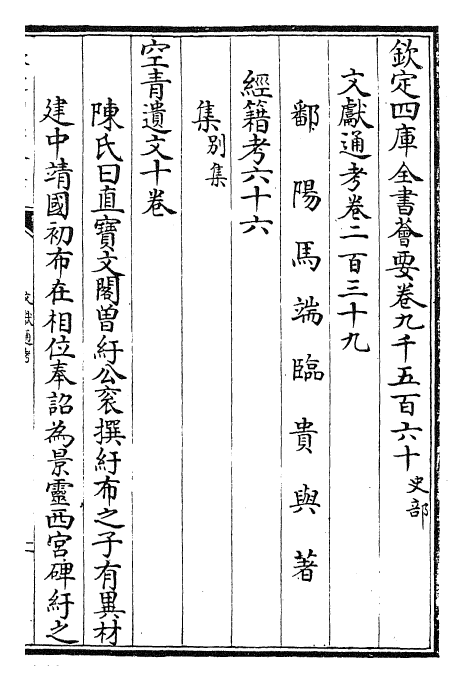 欽定四庫全書薈要卷九千五百六十 史部
文獻通考卷二百三十九
鄱陽馬端臨貴與著
經籍考六十六
集 别集
空青遺文十卷
陳氏曰直寶文閣曾紆公衮撰紆布之子有異材
建中靖國初布在相位奉詔為景靈西宮碑紆之
文獻通考